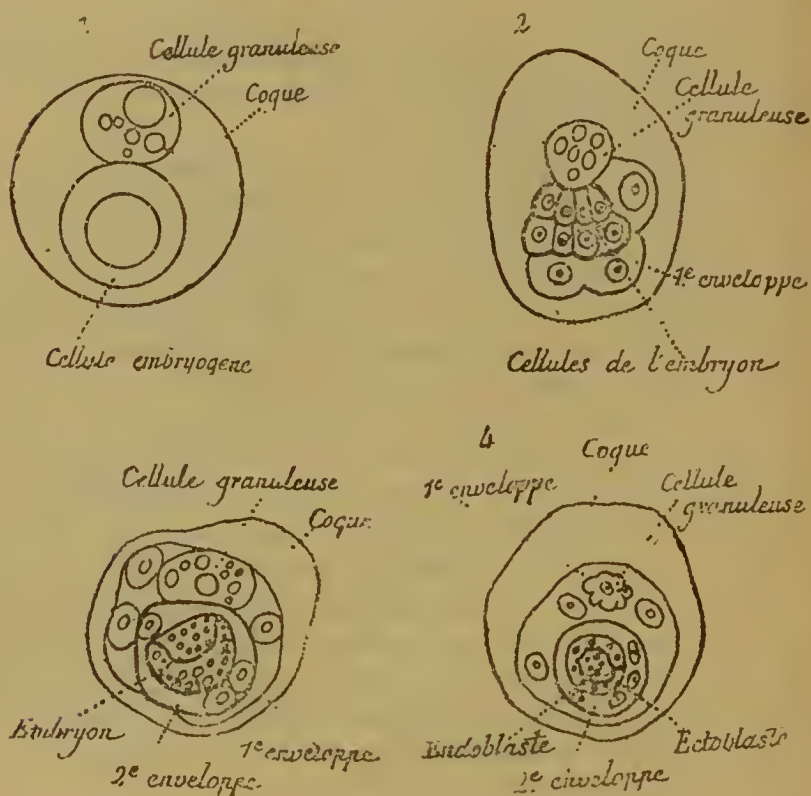 1
Cellule granuleuse
Coque
Cellule embryogene
2
Coque
Cellule
granuleuse
1e enveloppe
Cellules de l'embryon
Cellule granuleuse
Coque
Embryon
1e enveloppe
2e enveloppe
4
Coque
1e enveloppe
Cellule
granuleuse
Endoblaste
Ectoblaste
2e enveloppe